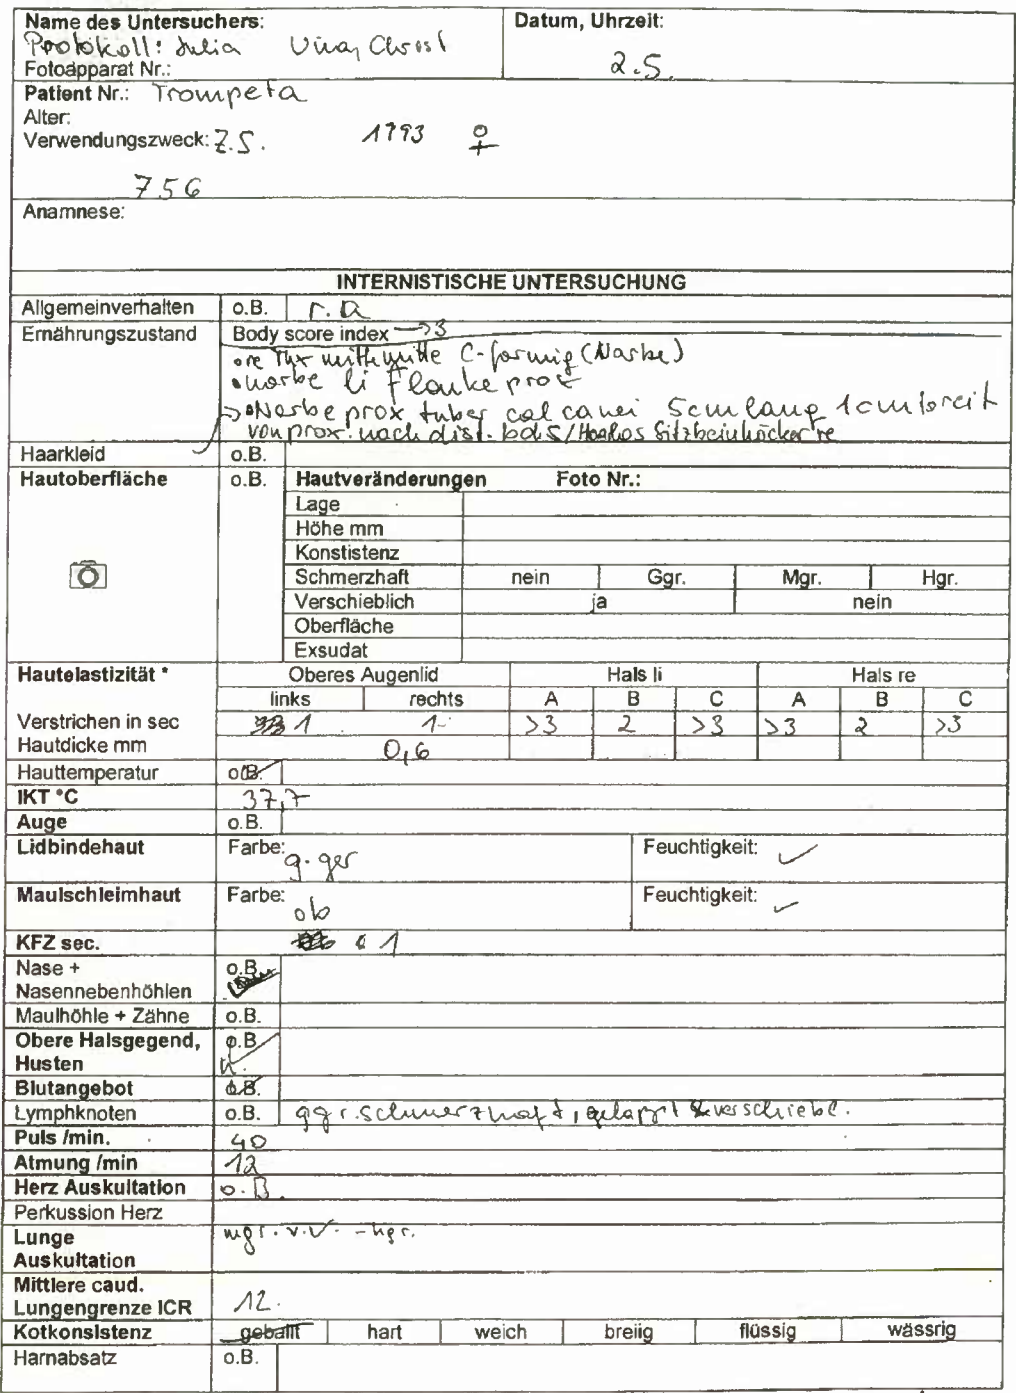 Name des Untersuchers: Datum, Uhrzeit:
Protokoll: Julia Vina, Christ
Fotoapparat Nr.: 2.5.
Patient Nr.: Trompeta
Alter:
Verwendungszweck: Z.S. 1793 ♀
756
Anamnese:
INTERNISTISCHE UNTERSUCHUNG
Allgemeinverhalten o.B. r.a
Ernährungszustand Body score index →3
• re Thx mitte C-förmig (Narbe)
• narbe li Flanke prox
→ • Narbe prox tuber calcanei 5cm lang 1cm breit
von prox. nach dist. bds / Haarlos Sitzbeinhöcker re
Haarkleid o.B.
Hautoberfläche o.B. Hautveränderungen Foto Nr.:
Lage
Höhe mm
Konstistenz
Schmerzhaft nein Ggr. Mgr. Hgr.
Verschieblich ja nein
Oberfläche
Exsudat
Hautelastizität * Oberes Augenlid Hals li Hals re
links rechts A B C A B C
Verstrichen in sec 1 1 >3 2 >3 >3 2 >3
Hautdicke mm 0,6
Hauttemperatur o.B.
IKT °C 37,7
Auge o.B.
Lidbindehaut Farbe: g. ger Feuchtigkeit: ✓
Maulschleimhaut Farbe: ob Feuchtigkeit: ✓
KFZ sec. 1
Nase + o.B.
Nasennebenhöhlen
Maulhöhle + Zähne o.B.
Obere Halsgegend, o.B.
Husten
Blutangebot o.B.
Lymphknoten o.B. ggr. schmerzhaft, gelappt & verschiebl.
Puls /min. 40
Atmung /min 12
Herz Auskultation o.B.
Perkussion Herz
Lunge mgr. v.V. - hgr.
Auskultation
Mittlere caud.
Lungengrenze ICR 12.
Kotkonsistenz geballt hart weich breiig flüssig wässrig
Harnabsatz o.B.